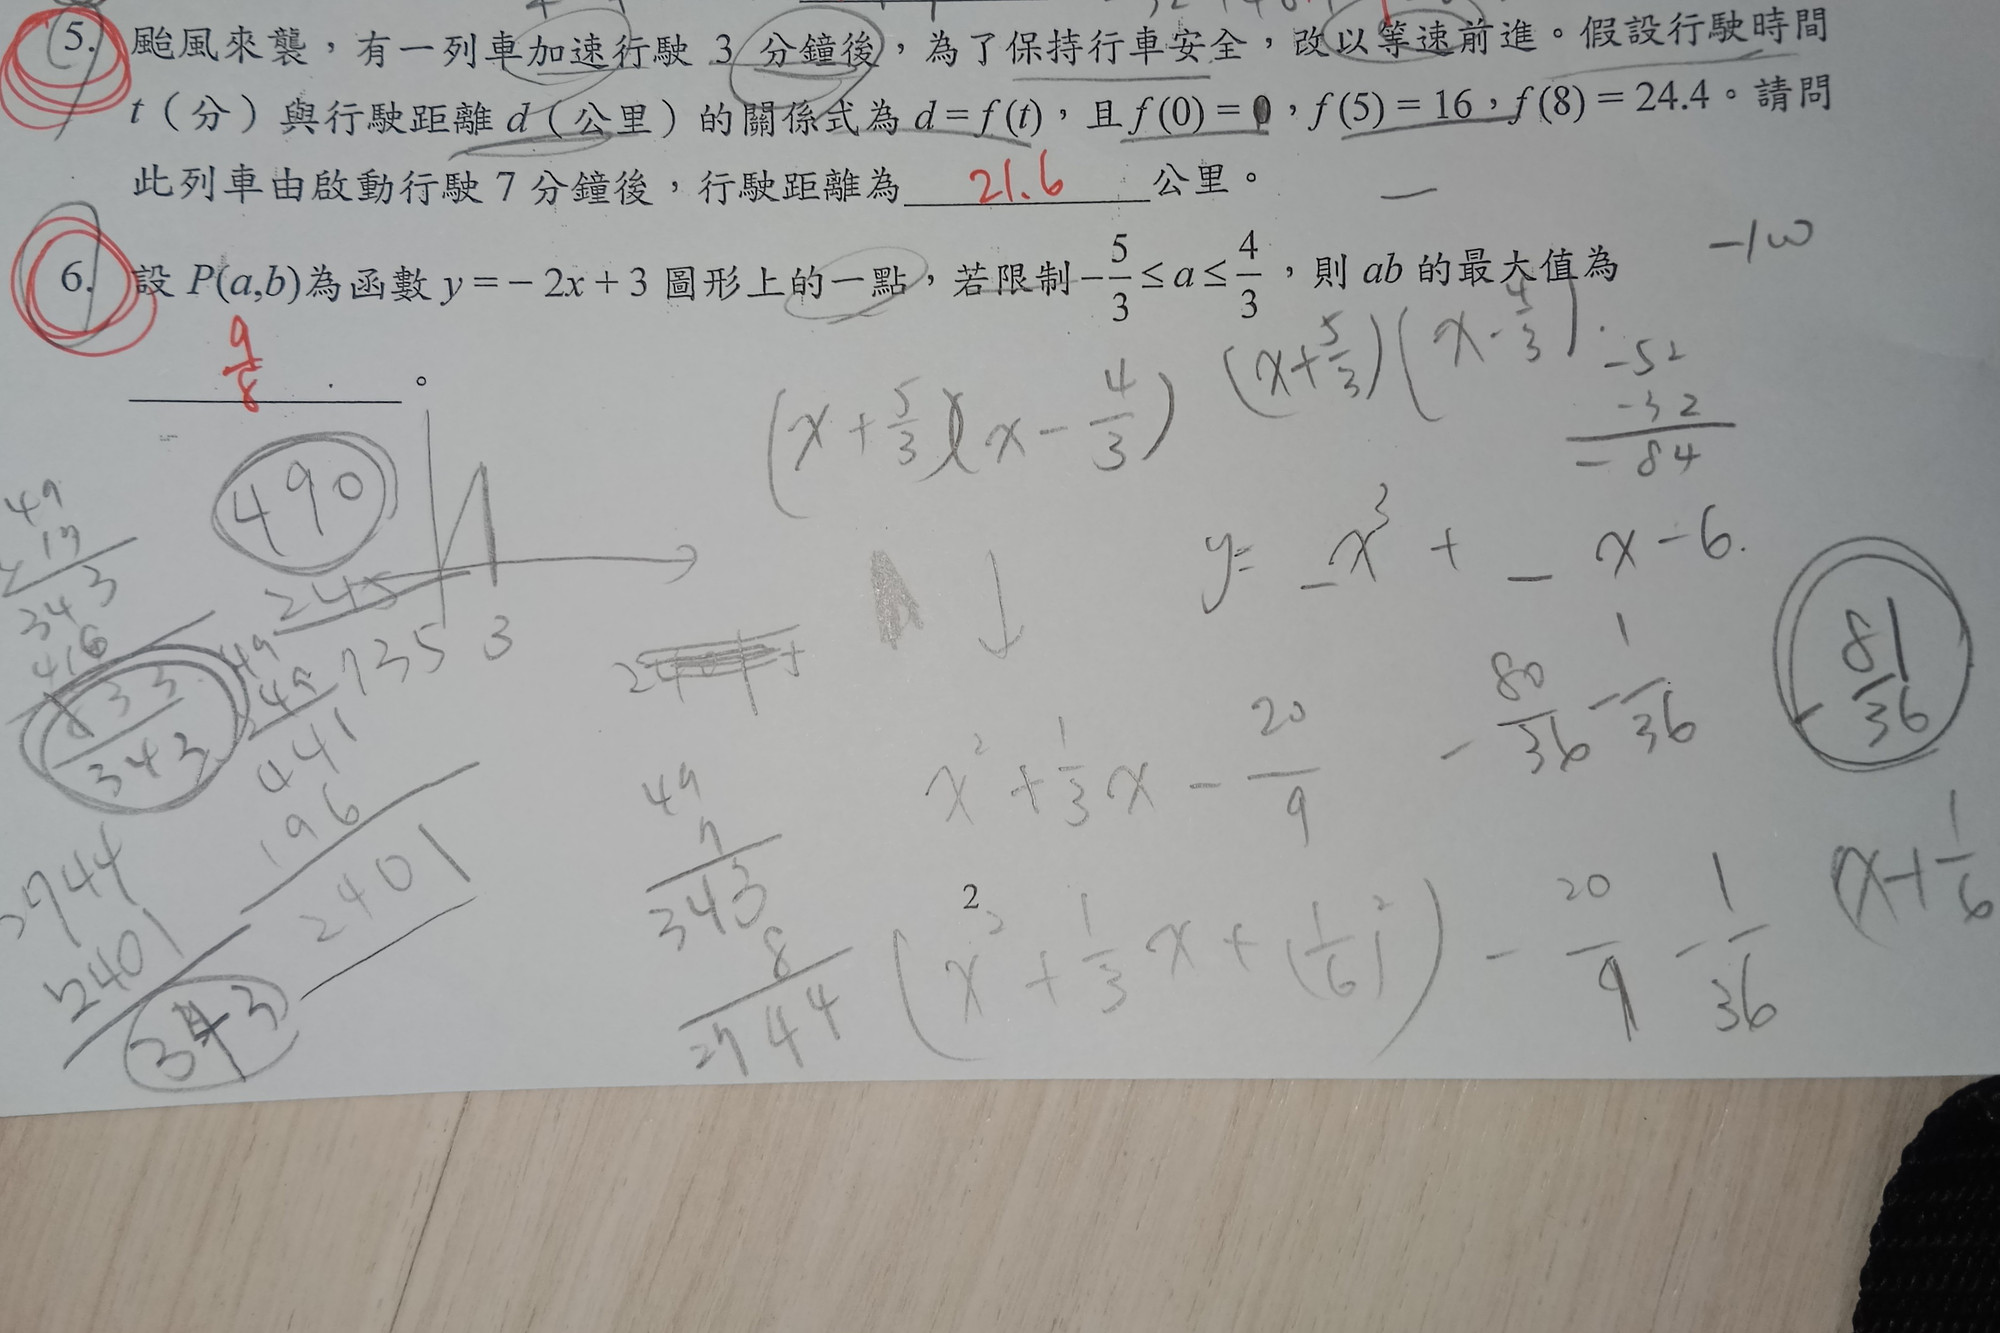 5. 颱風來襲，有一列車加速行駛 3 分鐘後，為了保持行車安全，改以等速前進。假設行駛時間
t（分）與行駛距離 d（公里）的關係式為 d = f(t)，且 f(0) = 0，f(5) = 16，f(8) = 24.4。請問
此列車由啟動行駛 7 分鐘後，行駛距離為 21.6 公里。
6. 設 P(a,b)為函數 y = − 2x + 3 圖形上的一點，若限制 −5/3 ≤ a ≤ 4/3，則 ab 的最大值為
9/8 。
(x + 5/3)(x − 4/3)
(x + 5/3)(x − 4/3)
−52
−32
−84
490
49
343
245
735
3
y = _x³ + _ x − 6.
833
343
49
49
441
196
2401
x² + 1/3 x − 20/9
− 80/36 − 1/36
− 81/36
49
7
343
8
2744
2744
2401
343
(x² + 1/3 x + (1/6)²) − 20/9 − 1/36
(x + 1/6
2